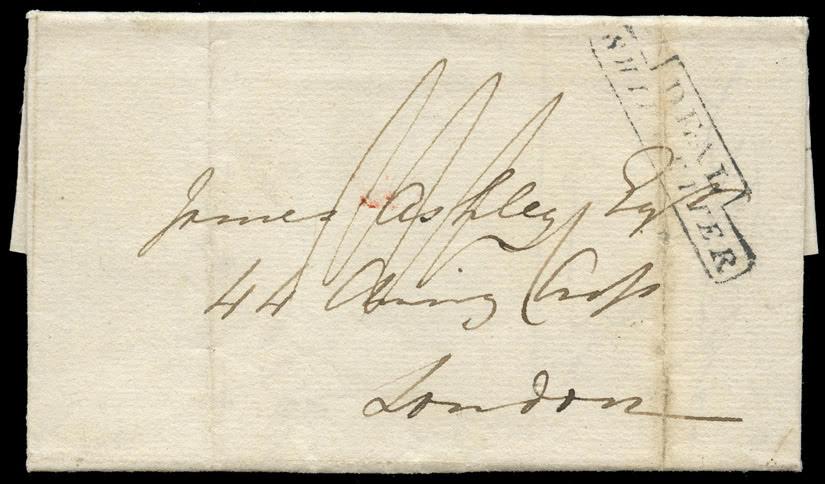 DEAL
SHIP LETTER
James Ashley Esqr
44 Charing Cross
London